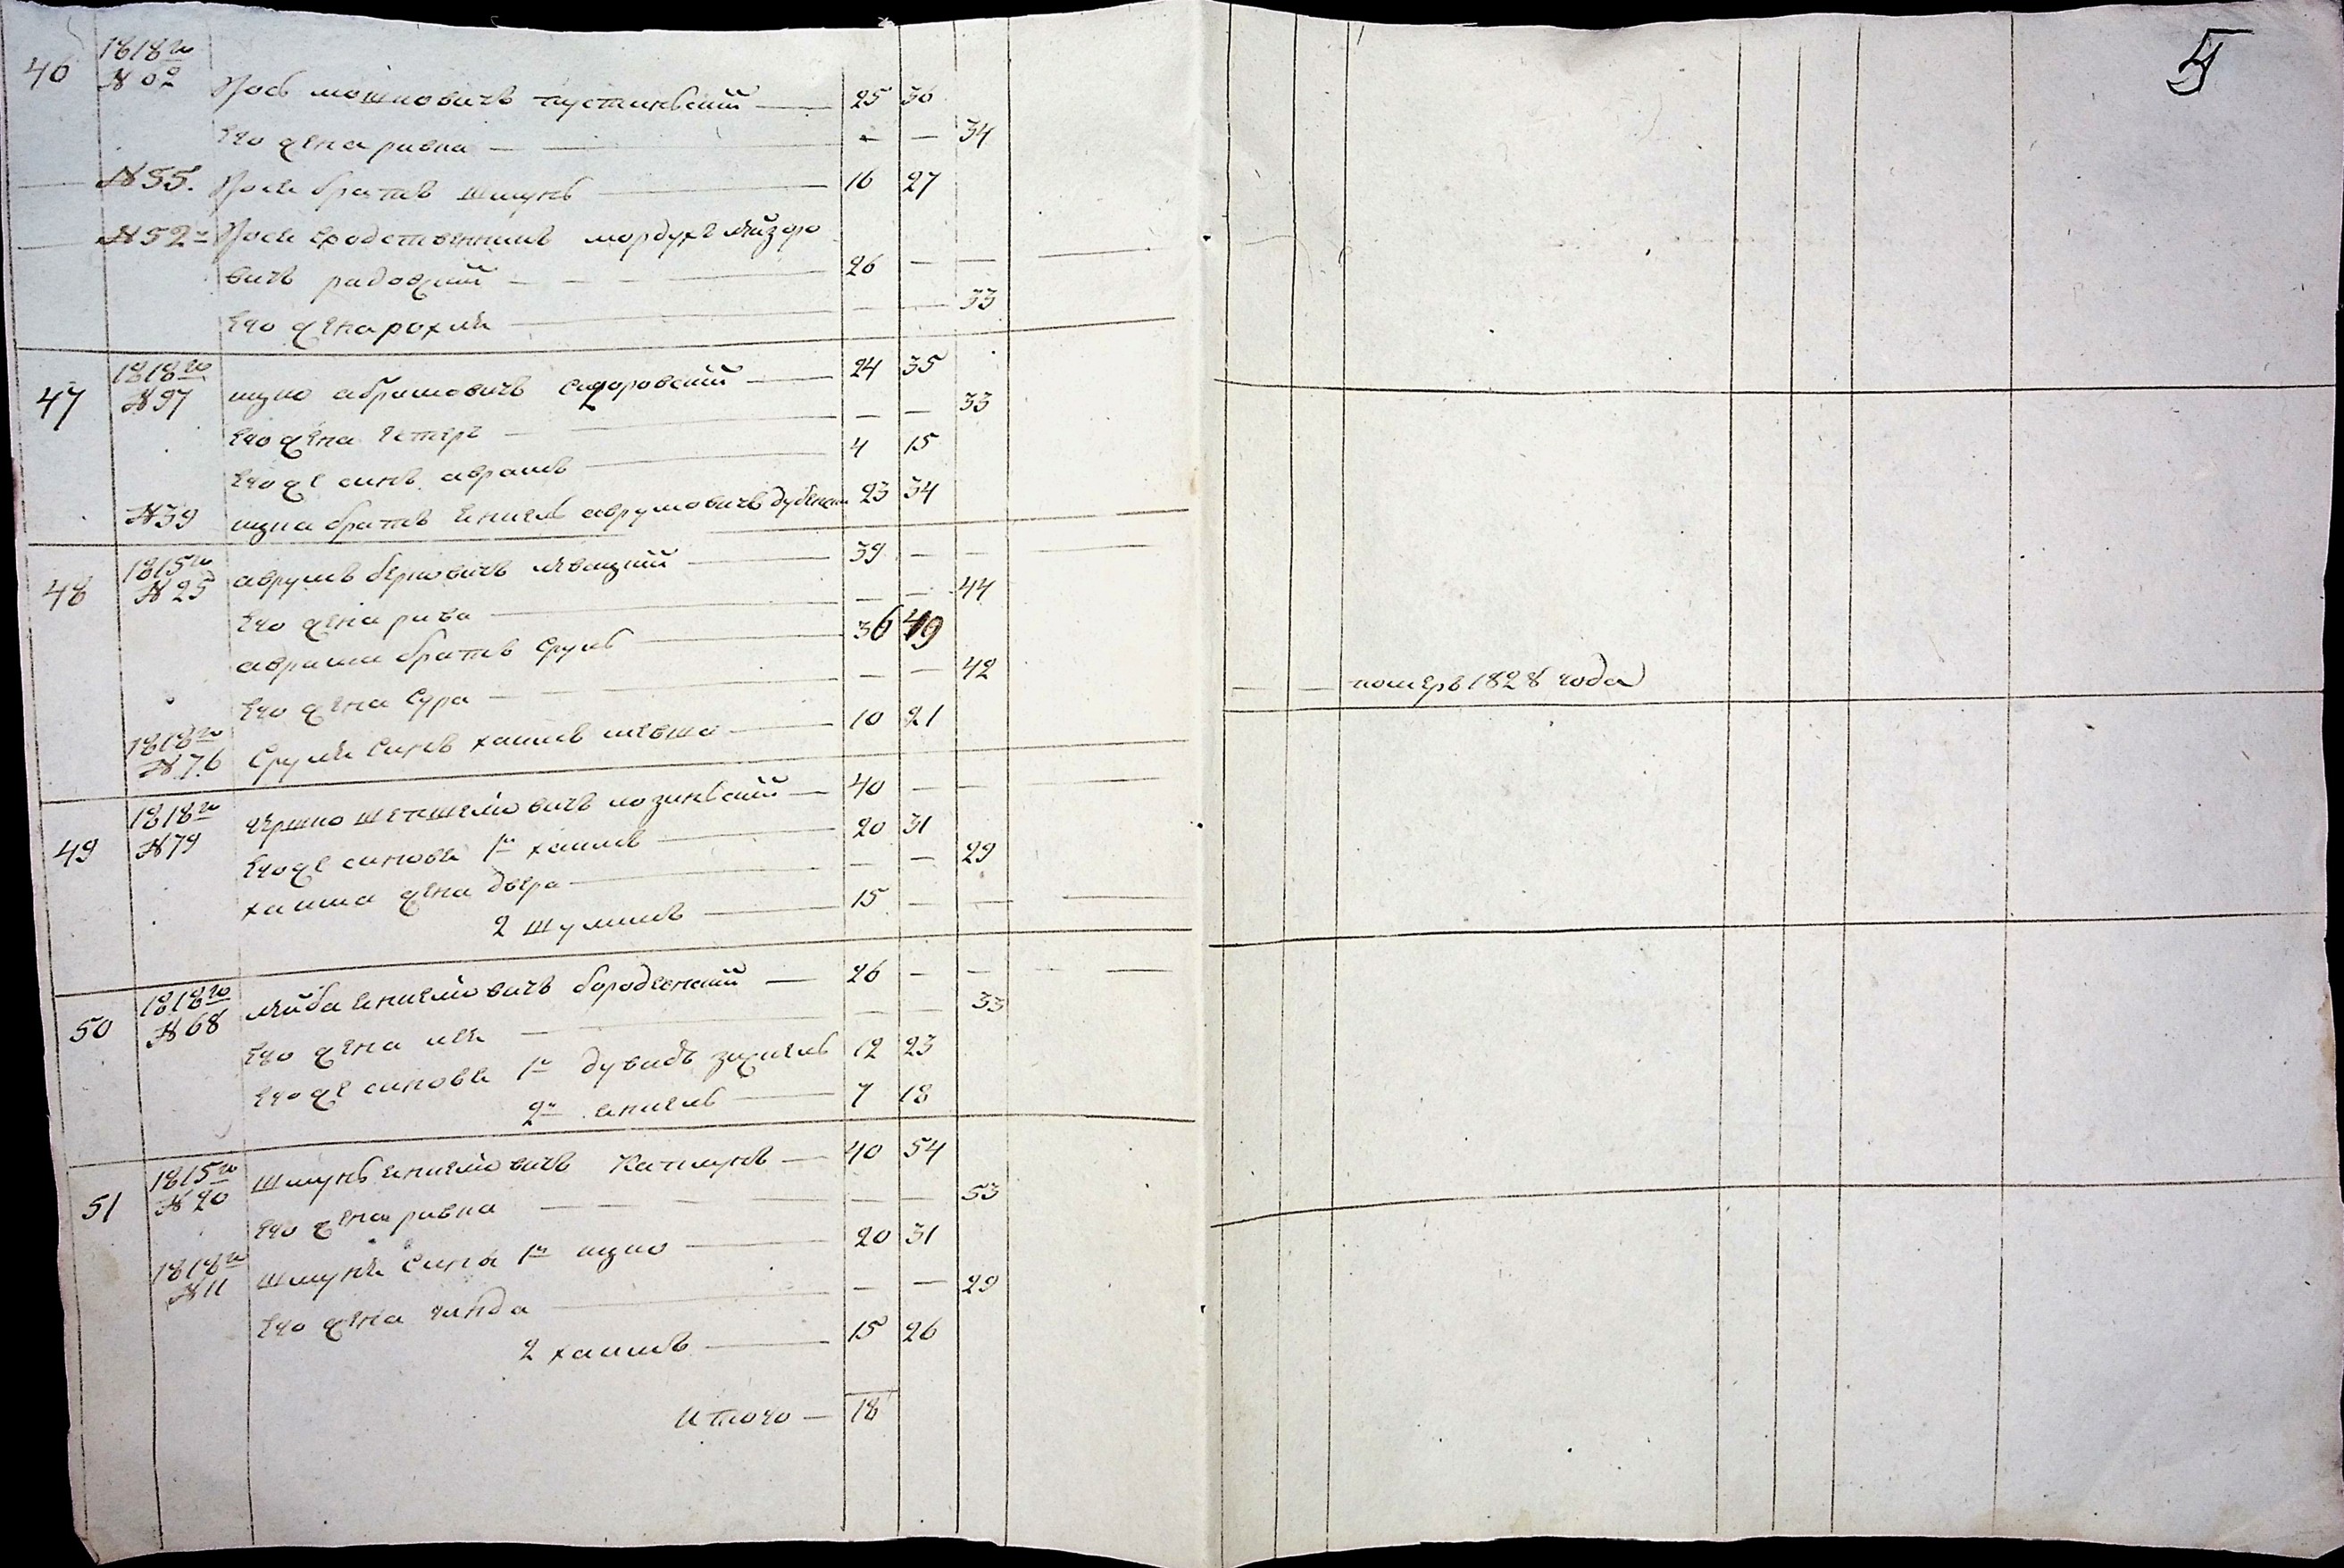 5
46 1818го № 02 Йосъ мошковичъ пустинскій 25 36
Его жена ривка 34
№ 55. Йося братъ шмунь 16 27
№ 52 Йося сродственникъ мордухъ лейзоро
вичъ радозкій 26
Его жена рохля 33
47 1818го № 97 ицко абрамовичъ сидоровскій 24 35
Его жена естеръ 33
Его же синъ абрамъ 4 15
№ 39 ицка братъ Енкель аврумовичъ дубенск 23 34
48 1815го № 25 аврумъ берковичъ левицкій 39
Его жена рива 44
аврама братъ Сруль 36 49
Его жена Сура 42
1818го № 76 Сруля Синъ хаимъ лейвша 10 21
померъ 1828 года
49 1818го № 79 гершко шепшелiовичъ лозинскій 40
Его же синовя 1й хаимъ 20 31
хаима жена двера 29
2 шулимъ 15
50 1818го № 68 лейба енкелiовичъ бородянскій 26
Его жена лея 33
Его же синовя 1й дувидъ зихиель 12 23
2й енкель 7 18
51 1815го № 20 шмунь енкелiовичъ Каплунъ 40 54
Его жена ривка 53
1818го № 11 шмуня Сины 1й ицко 20 31
Его жена гинда 29
2 хаимъ 15 26
Итого 18